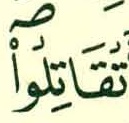 تُقَاتِلُواْ